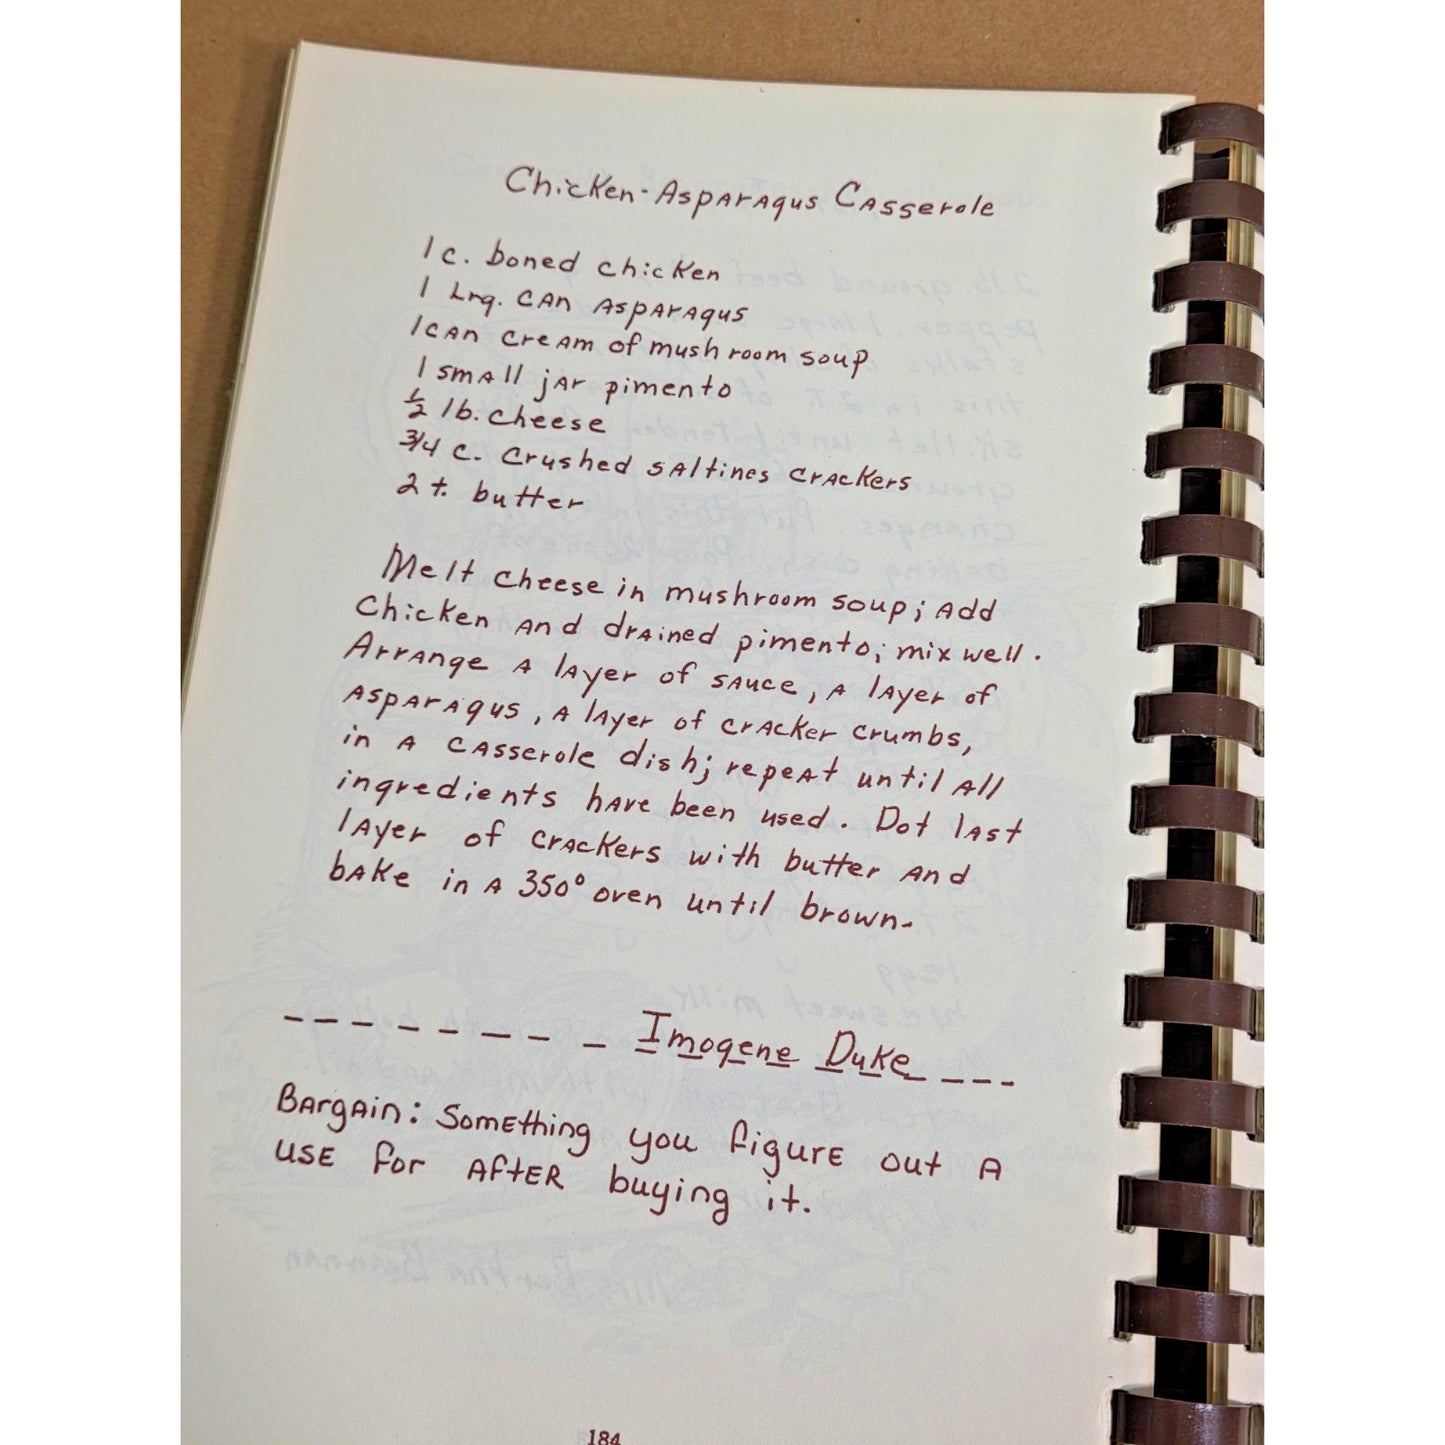 Chicken-Asparagus Casserole
1 c. boned chicken
1 Lrg. can asparagus
1 can cream of mushroom soup
1 small jar pimento
1/2 lb. cheese
3/4 c. crushed saltines crackers
2 t. butter
Melt cheese in mushroom soup; add
chicken and drained pimento; mix well.
Arrange a layer of sauce, a layer of
asparagus, a layer of cracker crumbs,
in a casserole dish; repeat until all
ingredients have been used. Dot last
layer of crackers with butter and
bake in a 350° oven until brown.
Imogene Duke
Bargain: Something you figure out a
use for after buying it.
184